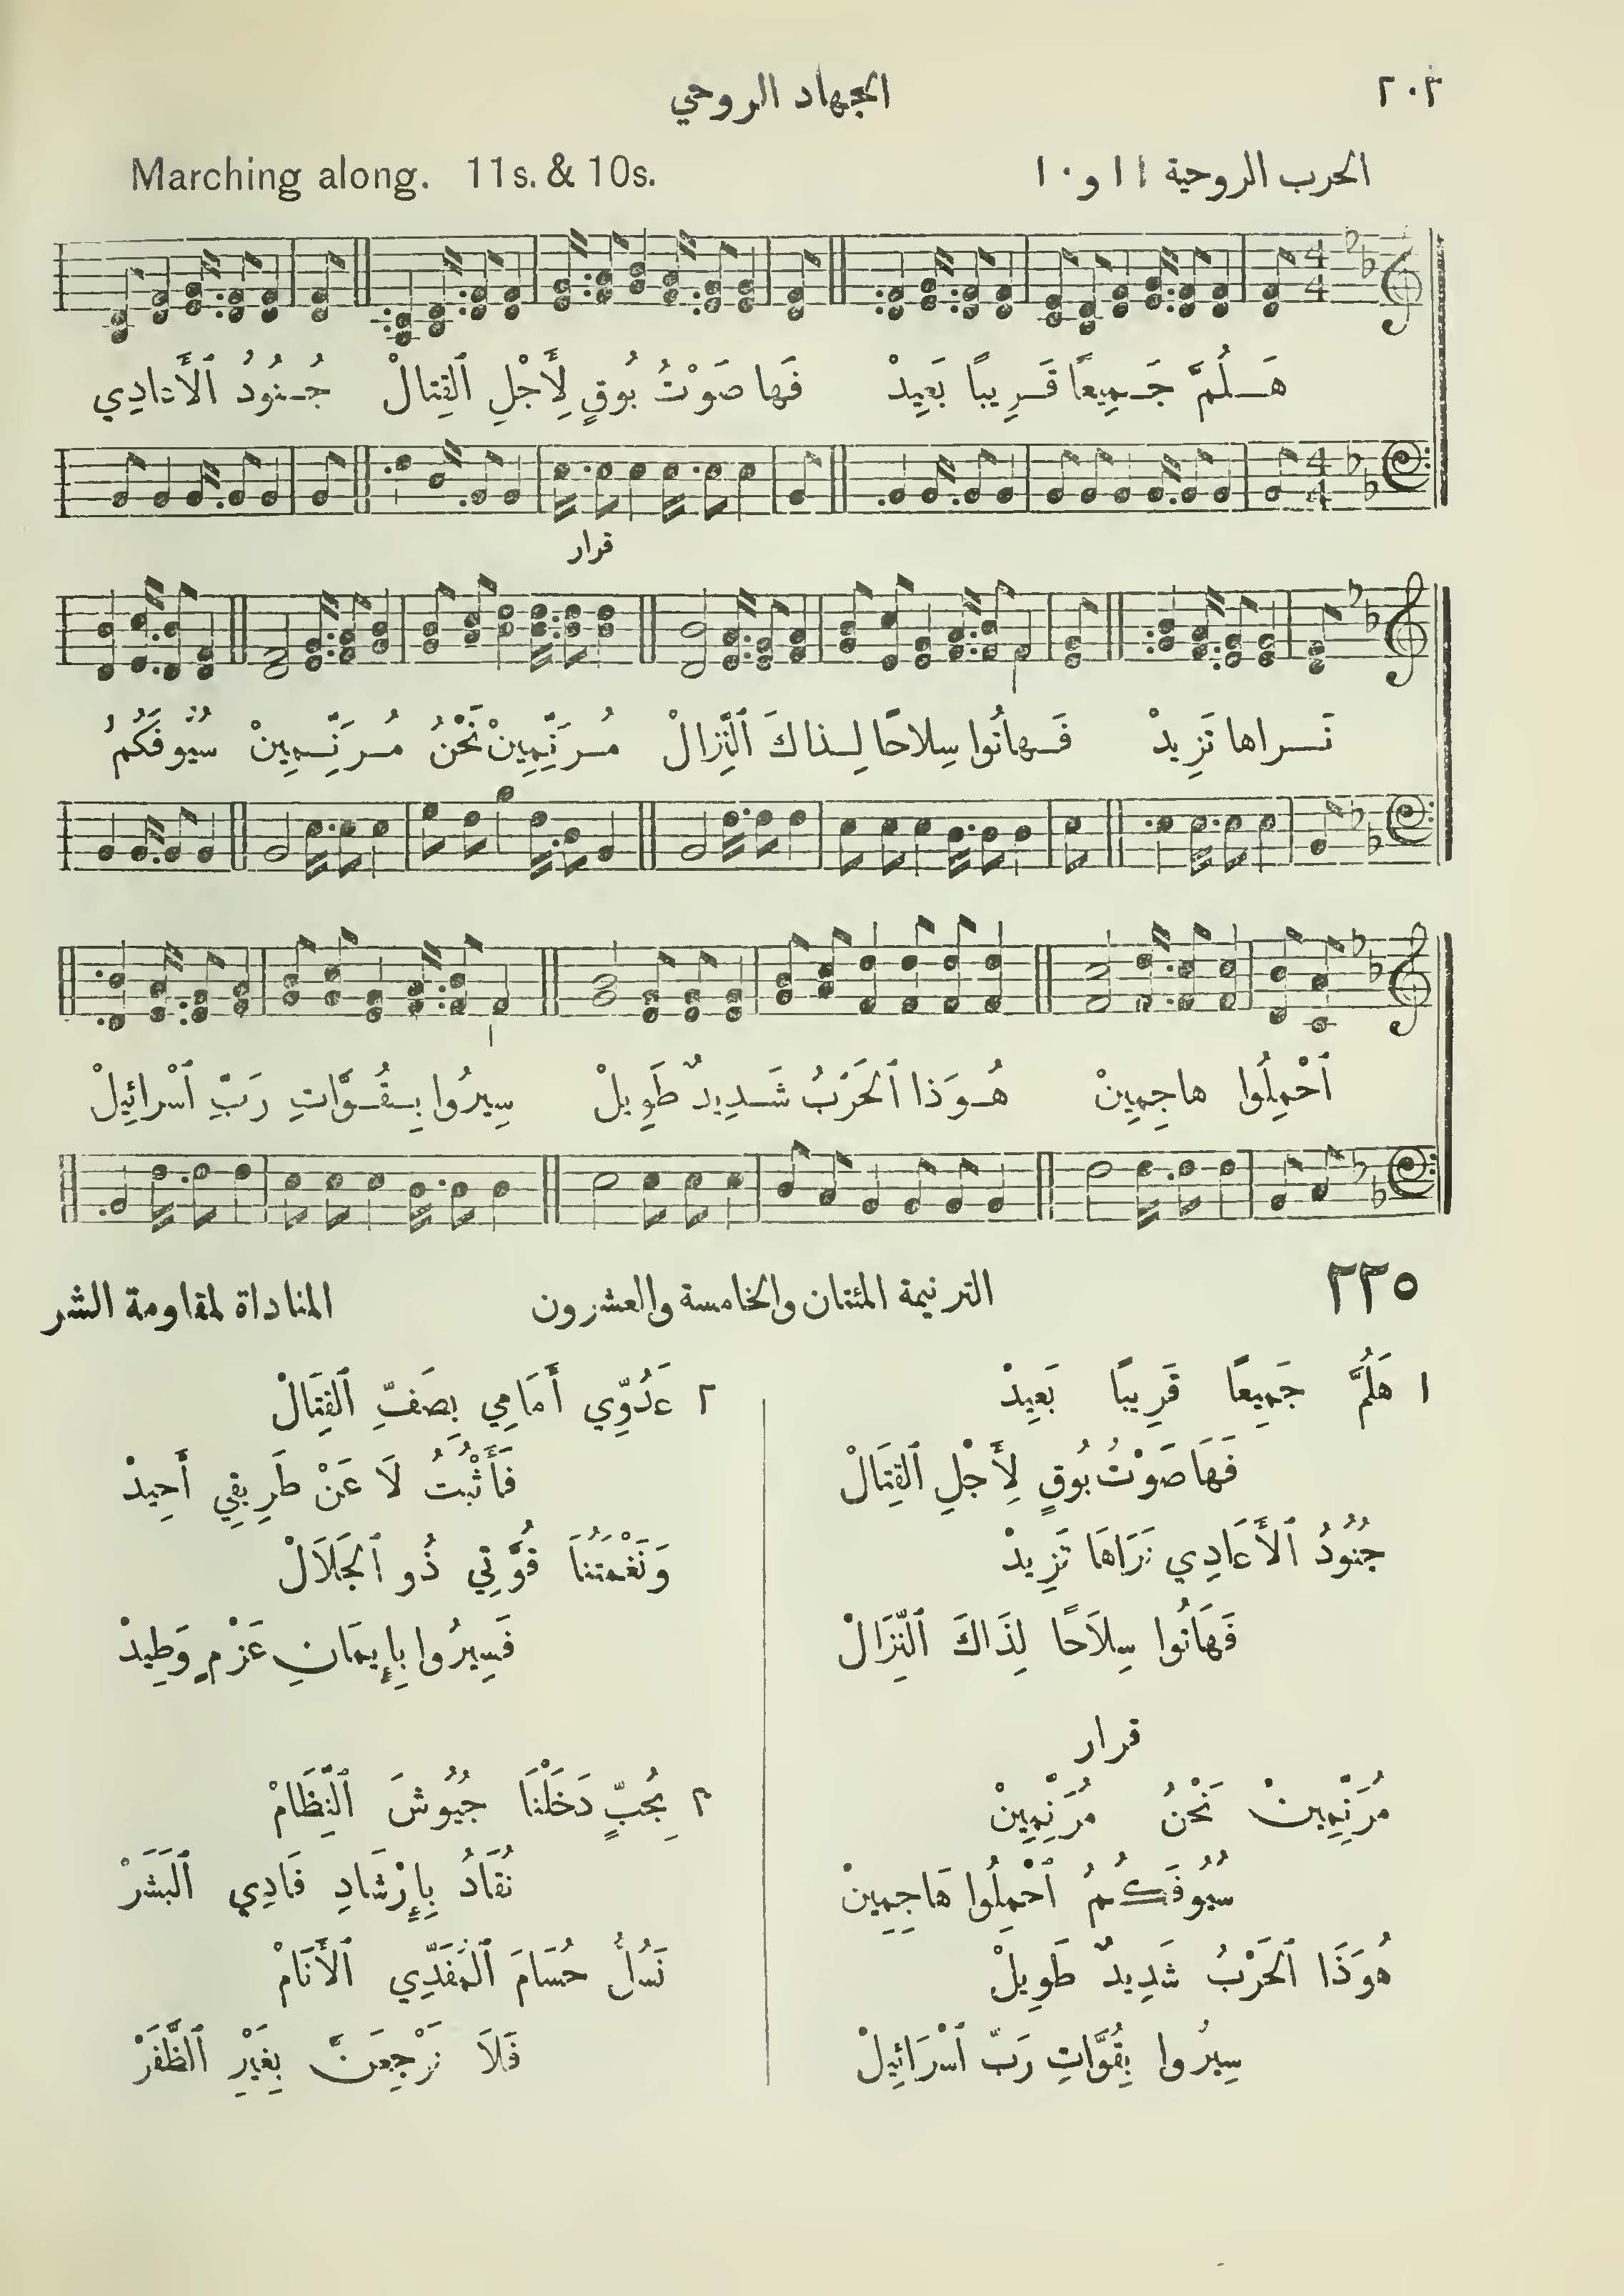 ٢٠٢
الجهاد الروحي
الحرب الروحية ١١ و ١٠
Marching along. 11s. & 10s.
هَلُمَّ جَمِيعًا قَرِيبًا بَعِيدْ فَها صَوْتُ بُوقٍ لِأَجْلِ ٱلقِتالْ جُنُودُ ٱلأَعادِي
قرار
نَراها تَزِيدْ فَهاتُوا سِلاحًا لِذاكَ ٱلنِّزالْ مُرَنِّمِينْ نَحْنُ مُرَنِّمِينْ سُيُوفَكُمُ
ٱحْمِلُوا هاجِمِينْ هُوَذا ٱلحَرْبُ شَدِيدٌ طَوِيلْ سِيرُوا بِقُوَّاتِ رَبِّ ٱسْرائِيلْ
٢٢٥ الترنيمة المئتان والخامسة والعشرون المناداة لمقاومة الشر
١ هَلُمَّ جَمِيعًا قَرِيبًا بَعِيدْ
فَهَا صَوْتُ بُوقٍ لِأَجْلِ ٱلقِتَالْ
جُنُودُ ٱلأَعَادِي نَرَاهَا تَزِيدْ
فَهَاتُوا سِلَاحًا لِذَاكَ ٱلنِّزَالْ
قرار
مُرَنِّمِينْ نَحْنُ مُرَنِّمِينْ
سُيُوفَكُمُ ٱحْمِلُوا هَاجِمِينْ
هُوَذَا ٱلحَرْبُ شَدِيدٌ طَوِيلْ
سِيرُوا بِقُوَّاتِ رَبِّ ٱسْرَائِيلْ
٢ عَدُوِّي أَمَامِي بِصَفِّ ٱلقِتَالْ
فَأَثْبُتُ لَا عَنْ طَرِيقِي أَحِيدْ
وَنَغْمَتُنَا قُوَّتِي ذُو ٱلجَلَالْ
فَسِيرُوا بِإِيمَانِ عَزْمٍ وَطِيدْ
٣ بِحُبٍّ دَخَلْنَا جُيُوشَ ٱلنِّظَامْ
نُقَادُ بِإِرْشَادِ فَادِي ٱلبَشَرْ
نَسُلُّ حُسَامَ ٱلمُفَدِّي ٱلأَنَامْ
فَلَا نَرْجِعَنَّ بِغَيْرِ ٱلظَّفَرْ